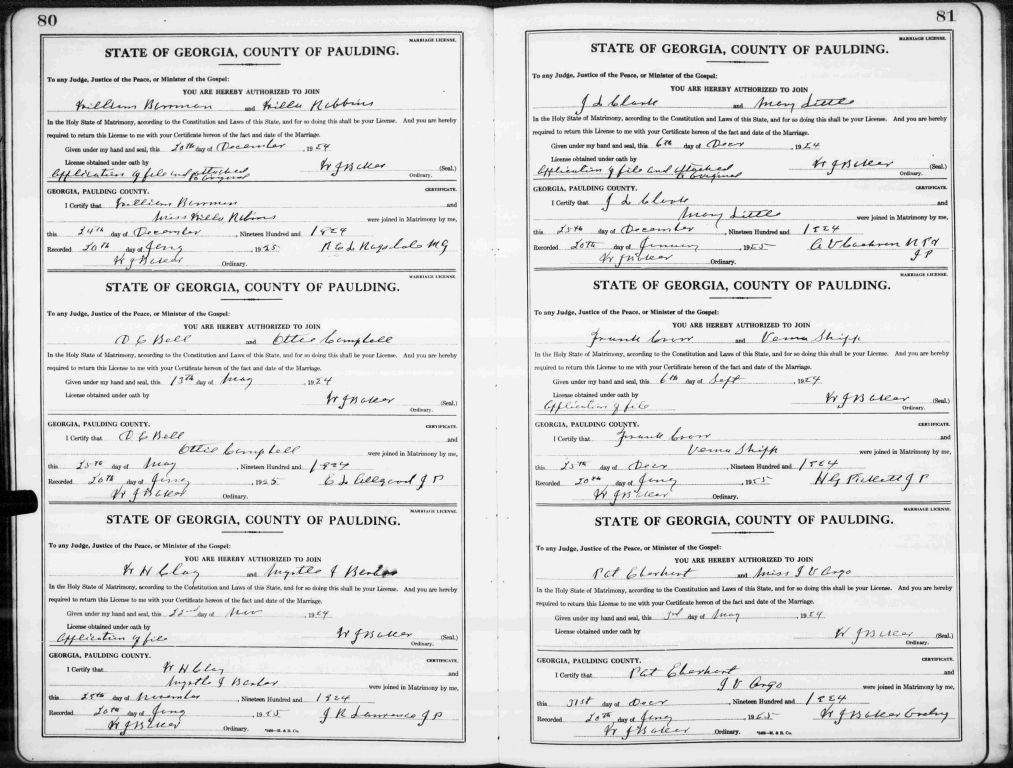 80
MARRIAGE LICENSE.
STATE OF GEORGIA, COUNTY OF PAULDING.
To any Judge, Justice of the Peace, or Minister of the Gospel:
YOU ARE HEREBY AUTHORIZED TO JOIN
William Bowman and Willa Robbins
In the Holy State of Matrimony, according to the Constitution and Laws of this State, and for so doing this shall be your License. And you are hereby
required to return this License to me with your Certificate hereon of the fact and date of the Marriage.
Given under my hand and seal, this 20th day of December, 1924
License obtained under oath by
W J Baker (Seal.)
Application of file and attached to original
Ordinary.
GEORGIA, PAULDING COUNTY. CERTIFICATE.
I Certify that William Bowman and
Miss Willa were joined in Matrimony by me,
this 24th day of December, Nineteen Hundred and 1924
Recorded 20th day of Jany, 1925 M G
W J Baker Ordinary.
MARRIAGE LICENSE.
STATE OF GEORGIA, COUNTY OF PAULDING.
To any Judge, Justice of the Peace, or Minister of the Gospel:
YOU ARE HEREBY AUTHORIZED TO JOIN
D C Bell and Ottie Campbell
In the Holy State of Matrimony, according to the Constitution and Laws of this State, and for so doing this shall be your License. And you are hereby
required to return this License to me with your Certificate hereon of the fact and date of the Marriage.
Given under my hand and seal, this 13th day of May, 1924
License obtained under oath by
W J Baker (Seal.)
Ordinary.
GEORGIA, PAULDING COUNTY. CERTIFICATE.
I Certify that D C Bell and
Ottie Campbell were joined in Matrimony by me,
this 25th day of May, Nineteen Hundred and 1924
Recorded 20th day of Jany, 1925 C L Allgood J P
W J Baker Ordinary.
MARRIAGE LICENSE.
STATE OF GEORGIA, COUNTY OF PAULDING.
To any Judge, Justice of the Peace, or Minister of the Gospel:
YOU ARE HEREBY AUTHORIZED TO JOIN
W H Clay and Myrtle J Barber
In the Holy State of Matrimony, according to the Constitution and Laws of this State, and for so doing this shall be your License. And you are hereby
required to return this License to me with your Certificate hereon of the fact and date of the Marriage.
Given under my hand and seal, this 22nd day of Nov, 1924
License obtained under oath by
W J Baker (Seal.)
Application of file
Ordinary.
GEORGIA, PAULDING COUNTY. CERTIFICATE.
I Certify that W H Clay and
Myrtle J Barber were joined in Matrimony by me,
this day of November, Nineteen Hundred and 1924
Recorded 20th day of Jany, 1925 J R Lawrence J P
W J Baker Ordinary.
81
MARRIAGE LICENSE.
STATE OF GEORGIA, COUNTY OF PAULDING.
To any Judge, Justice of the Peace, or Minister of the Gospel:
YOU ARE HEREBY AUTHORIZED TO JOIN
J L Clark and Mary Little
In the Holy State of Matrimony, according to the Constitution and Laws of this State, and for so doing this shall be your License. And you are hereby
required to return this License to me with your Certificate hereon of the fact and date of the Marriage.
Given under my hand and seal, this 6th day of Decr, 1924
License obtained under oath by
W J Baker (Seal.)
Application of file and attached to original
Ordinary.
GEORGIA, PAULDING COUNTY. CERTIFICATE.
I Certify that J L Clark and
Mary Little were joined in Matrimony by me,
this 25th day of December, Nineteen Hundred and 1924
Recorded 20th day of January, 1925 Cochran N P &
W J Baker Ordinary. J P
MARRIAGE LICENSE.
STATE OF GEORGIA, COUNTY OF PAULDING.
To any Judge, Justice of the Peace, or Minister of the Gospel:
YOU ARE HEREBY AUTHORIZED TO JOIN
Frank Crow and Verna Shipp
In the Holy State of Matrimony, according to the Constitution and Laws of this State, and for so doing this shall be your License. And you are hereby
required to return this License to me with your Certificate hereon of the fact and date of the Marriage.
Given under my hand and seal, this 6th day of Sept, 1924
License obtained under oath by
W J Baker (Seal.)
Application of file
Ordinary.
GEORGIA, PAULDING COUNTY. CERTIFICATE.
I Certify that Frank Crow and
Verna Shipp were joined in Matrimony by me,
this 25th day of Decr, Nineteen Hundred and 1924
Recorded 20th day of Jany, 1925 H G Pickett J P
W J Baker Ordinary.
MARRIAGE LICENSE.
STATE OF GEORGIA, COUNTY OF PAULDING.
To any Judge, Justice of the Peace, or Minister of the Gospel:
YOU ARE HEREBY AUTHORIZED TO JOIN
Pat Eberhart and Miss J V Argo
In the Holy State of Matrimony, according to the Constitution and Laws of this State, and for so doing this shall be your License. And you are hereby
required to return this License to me with your Certificate hereon of the fact and date of the Marriage.
Given under my hand and seal, this 3rd day of May, 1924
License obtained under oath by
W J Baker (Seal.)
Ordinary.
GEORGIA, PAULDING COUNTY. CERTIFICATE.
I Certify that Pat Eberhart and
J V Argo were joined in Matrimony by me,
this 31st day of Decr, Nineteen Hundred and 1924
Recorded 20th day of Jany, 1925 W J Baker Ordny
W J Baker Ordinary.